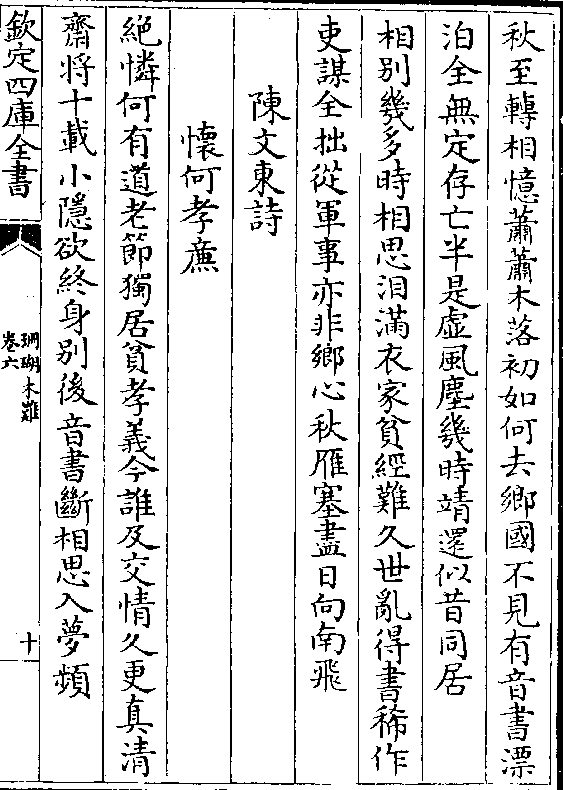 秋至轉相憶蕭蕭木落初如何去鄉國不見有音書漂
泊全無定存亡半是虛風塵幾時靖還似昔同居
相別幾多時相思淚滿衣家貧經難久世亂得書稀作
吏謀全拙從軍事亦非鄉心秋雁塞盡日向南飛
陳文東詩
懷何孝廉
絕憐何有道老節獨居貧孝義今誰及交情久更真清
齋將十載小隱欲終身別後音書斷相思入夢頻
欽定四庫全書
珊瑚木難
卷六
十